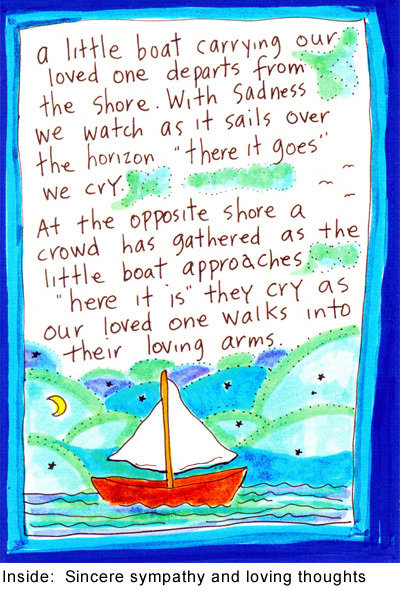 a little boat carrying our
loved one departs from
the shore. With sadness
we watch as it sails over
the horizon "there it goes"
we cry.
At the opposite shore a
crowd has gathered as the
little boat approaches
"here it is" they cry as
our loved one walks into
their loving arms.
Inside: Sincere sympathy and loving thoughts